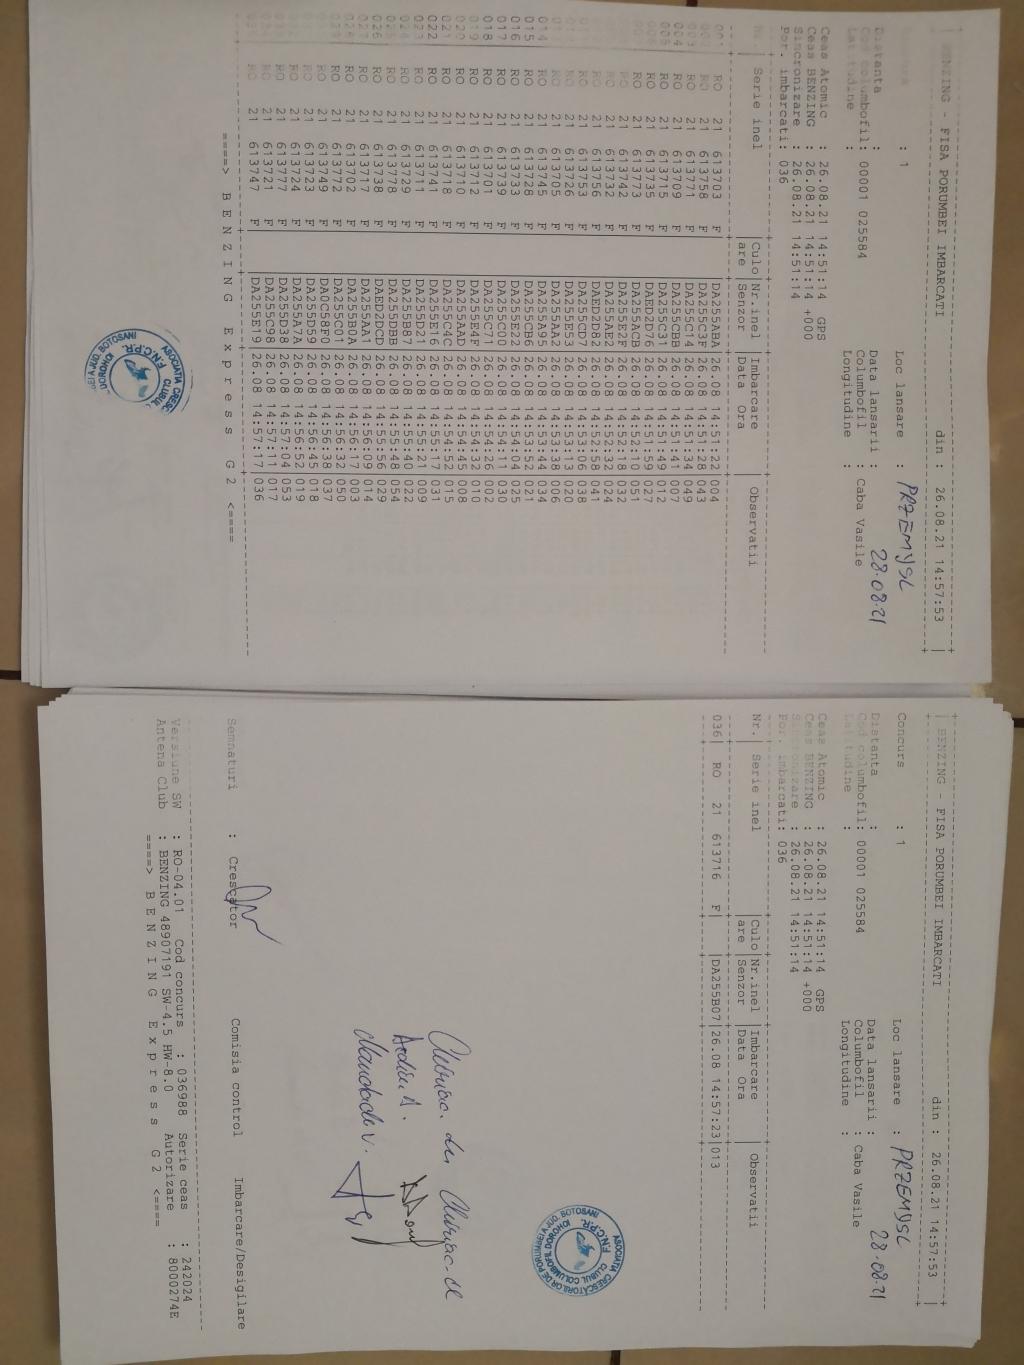 BENZING - FISA PORUMBEI IMBARCATI din : 26.08.21 14:57:53
: 1 Loc lansare : PRZEMYSL
Distanta : Data lansarii : 28.08.21
Cod columbofil: 00001 025584 Columbofil : Caba Vasile
Latitudine : Longitudine :
Ceas Atomic : 26.08.21 14:51:14 GPS
Ceas BENZING : 26.08.21 14:51:14 +000
Sincronizare : 26.08.21 14:51:14
Por. imbarcati: 036
Nr.| Serie inel |Culo|Nr.inel |Imbarcare | Observatii
are |Senzor |Data Ora
001 RO 21 613703 F DA255ABA 26.08 14:51:22 004
RO 21 613758 F DA255C3F 26.08 14:51:28 043
RO 21 613771 F DA255C14 26.08 14:51:34 049
004 RO 21 613709 F DA255CBB 26.08 14:51:41 007
RO 21 613715 F DA255C31 26.08 14:51:49 012
RO 21 613735 F DAED2D76 26.08 14:51:59 027
RO 21 613773 F DA255ACB 26.08 14:52:10 051
RO 21 613742 F DA255E2F 26.08 14:52:18 032
RO 21 613732 F DA255AE2 26.08 14:52:34 024
RO 21 613756 F DAED2D82 26.08 14:52:58 041
RO 21 613753 F DA255CD7 26.08 14:53:06 038
RO 21 613726 F DA255E53 26.08 14:53:13 020
RO 21 613705 F DA255AA2 26.08 14:53:38 006
014 RO 21 613745 F DA255A95 26.08 14:53:44 034
015 RO 21 613728 F DA255CB6 26.08 14:53:52 021
016 RO 21 613733 F DA255E22 26.08 14:54:04 025
017 RO 21 613739 F DA255CC0 26.08 14:54:11 030
018 RO 21 613701 F DA255C71 26.08 14:54:26 002
019 RO 21 613712 F DA255E4F 26.08 14:54:32 010
020 RO 21 613710 F DA255AAD 26.08 14:54:45 008
021 RO 21 613718 F DA255C4C 26.08 14:54:52 015
022 RO 21 613741 F DA255E16 26.08 14:55:17 031
023 RO 21 613711 F DA255D27 26.08 14:55:21 009
024 RO 21 613729 F DA255B87 26.08 14:55:40 022
RO 21 613778 F DA255DBB 26.08 14:55:48 054
026 RO 21 613738 F DAED2DCD 26.08 14:55:56 029
RO 21 613717 F DA255AA1 26.08 14:56:09 014
RO 21 613702 F DA255B0A 26.08 14:56:17 003
RO 21 613772 F DA255C01 26.08 14:56:32 050
RO 21 613749 F DA0C58F0 26.08 14:56:38 037
RO 21 613723 F DA255D59 26.08 14:56:45 018
RO 21 613724 F DA255A7A 26.08 14:56:52 019
RO 21 613777 F DA255D38 26.08 14:57:04 053
RO 21 613721 F DA255C98 26.08 14:57:11 017
RO 21 613747 F DA255E19 26.08 14:57:17 036
====> B E N Z I N G E x p r e s s G 2 <====
BENZING - FISA PORUMBEI IMBARCATI din : 26.08.21 14:57:53
Concurs : 1 Loc lansare : PRZEMYSL
Distanta : Data lansarii : 28.08.21
Cod columbofil: 00001 025584 Columbofil : Caba Vasile
Latitudine : Longitudine :
Ceas Atomic : 26.08.21 14:51:14 GPS
Ceas BENZING : 26.08.21 14:51:14 +000
Sincronizare : 26.08.21 14:51:14
Por. imbarcati: 036
Nr.| Serie inel |Culo|Nr.inel |Imbarcare | Observatii
are |Senzor |Data Ora
036| RO 21 613716 F| |DA255B07|26.08 14:57:23|013
ASOCIATIA CRESCATORILOR DE PORUMBEI A JUD. BOTOSANI
CLUBUL COLUMBOFIL DOROHOI
F.N.C.P.R.
Semnaturi : Crescator Comisia control Imbarcare/Desigilare
Versiune SW : RO-04.01 Cod concurs : 036988 Serie ceas : 242024
Antena Club : BENZING 48907191 SW-4.5 HW-8.0 Autorizare : 8000274E
====> B E N Z I N G E x p r e s s G 2 <====